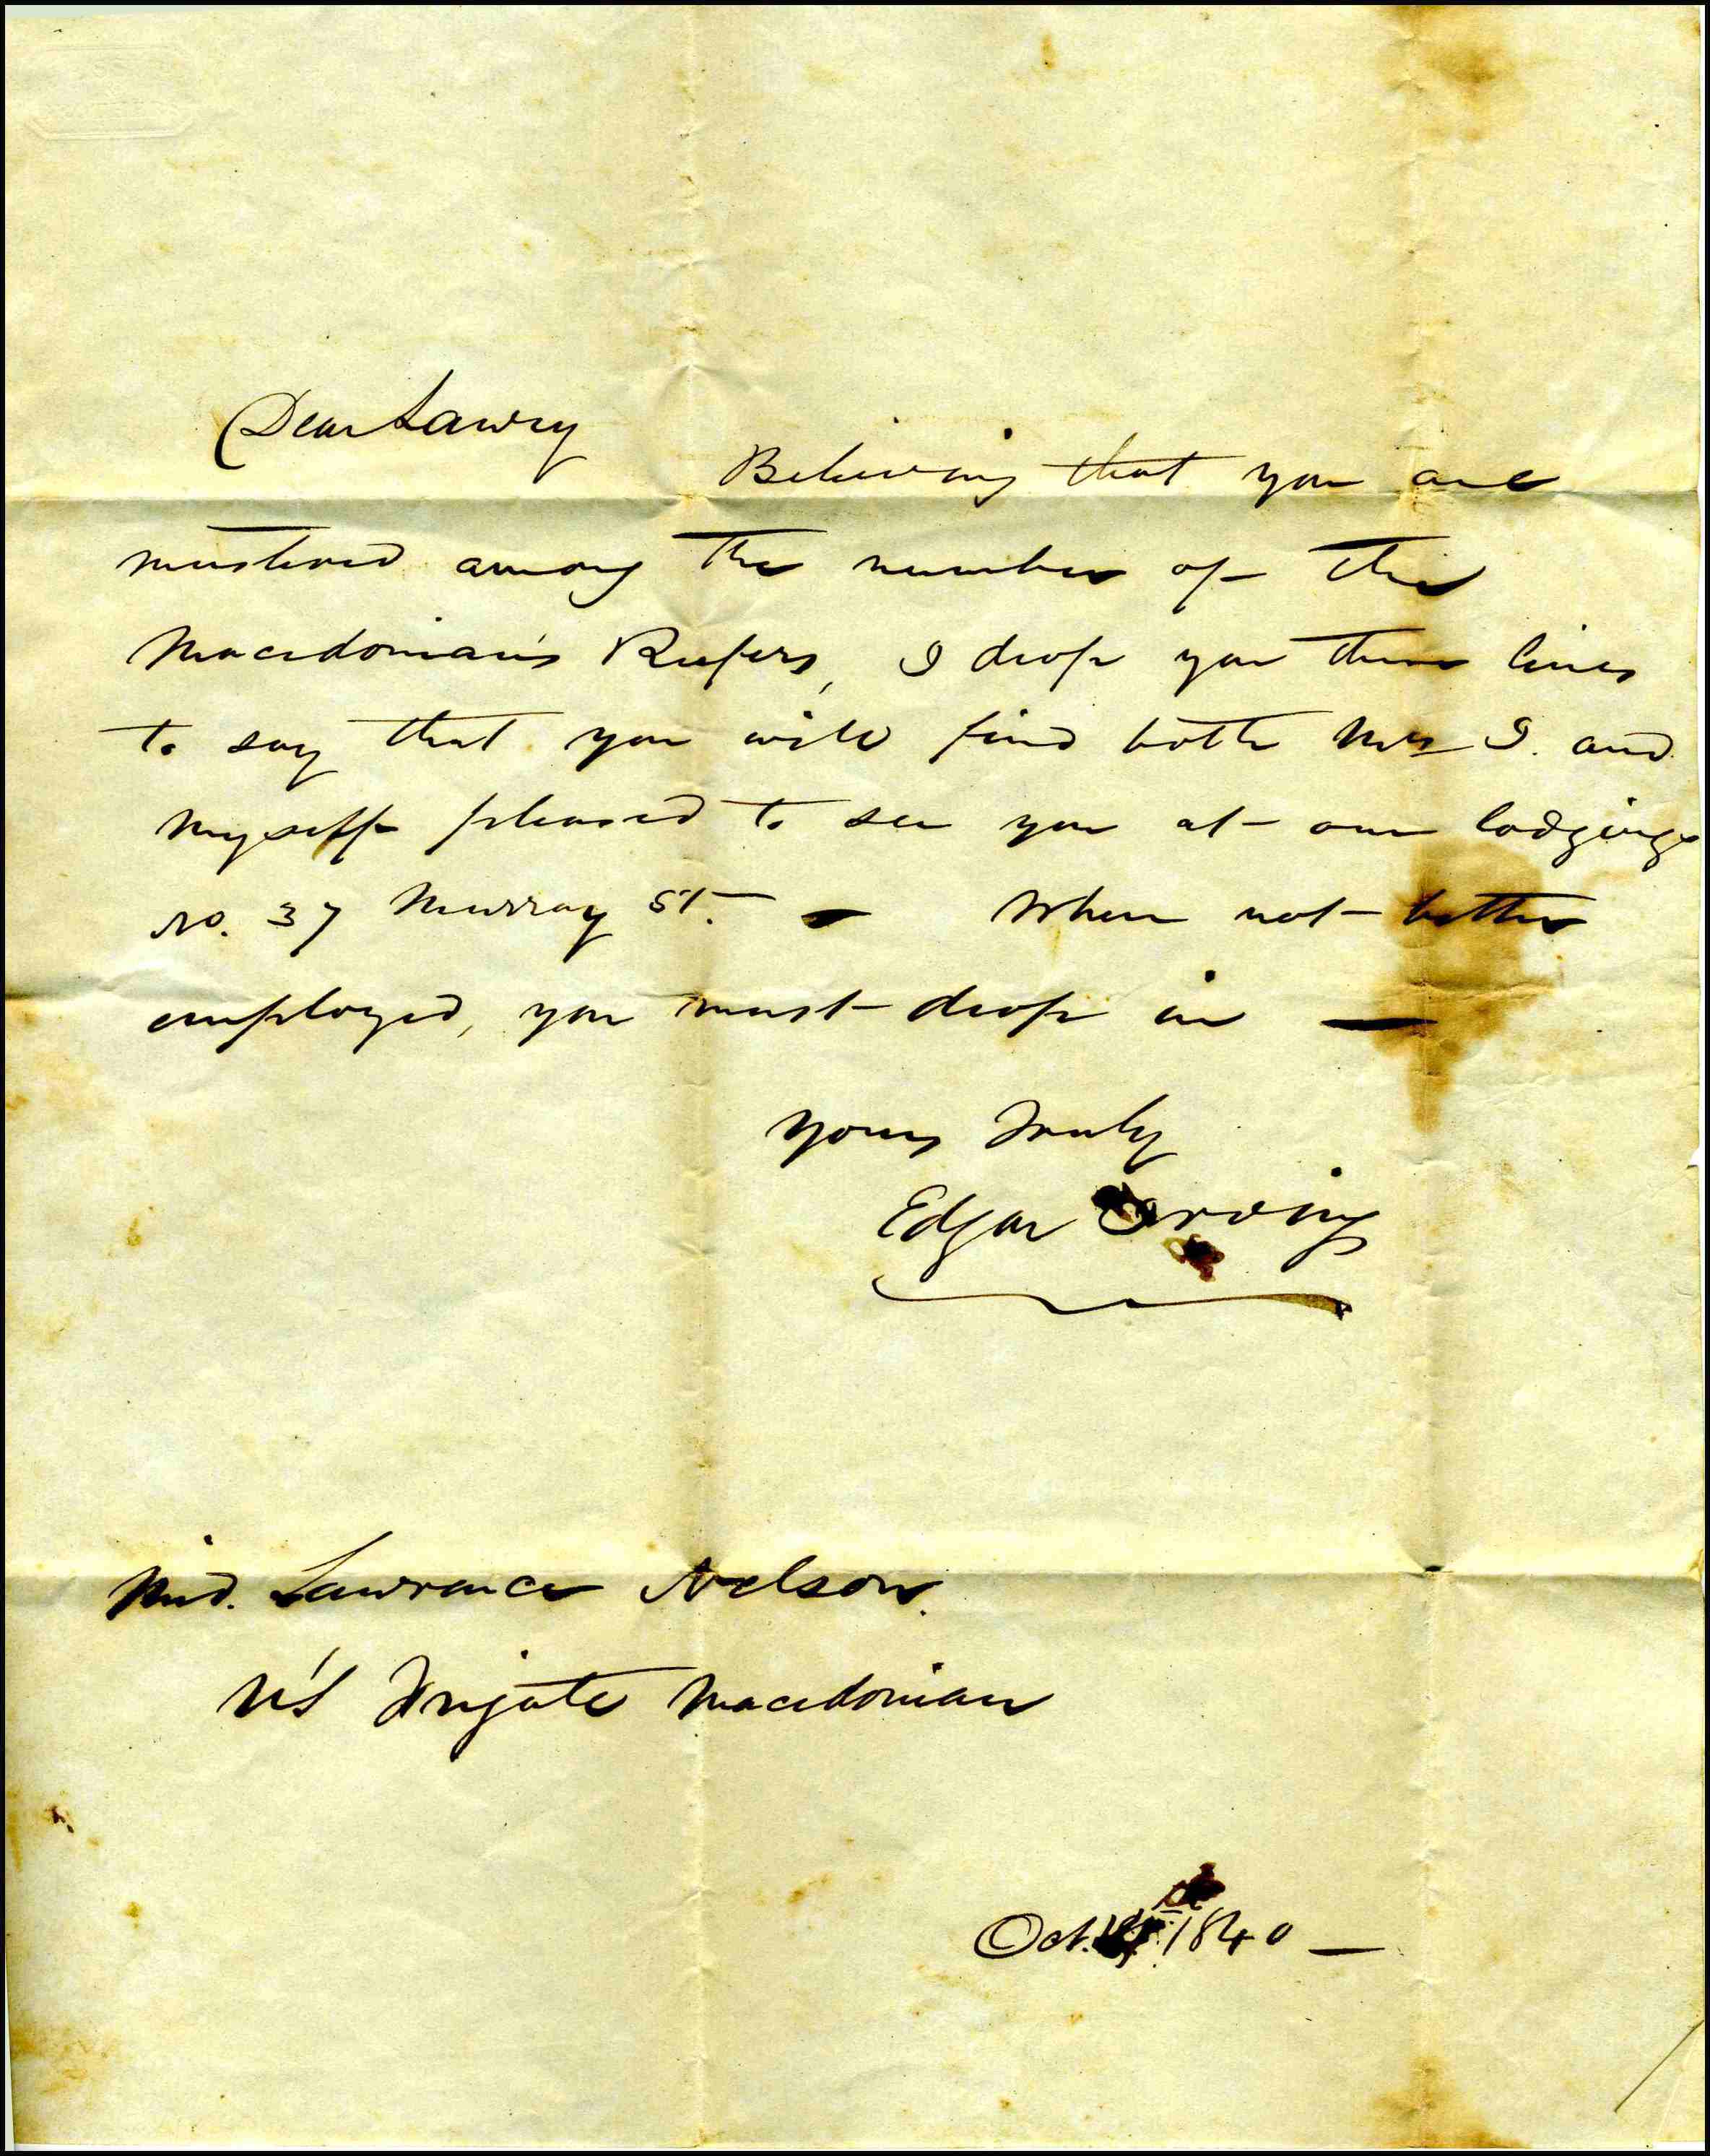 Dear Lawry
Believing that you are
mustered among the number of the
Macedonian's Reefers, I drop you these lines
to say that you will find both Mrs I. and
myself pleased to see you at our lodgings
No. 37 Murray St. — When not better
employed, you must drop in —
Yours Truly
Edgar Irving
Mid. Lawrence Nelson.
U'S Frigate Macedonian
Oct. 1840 —